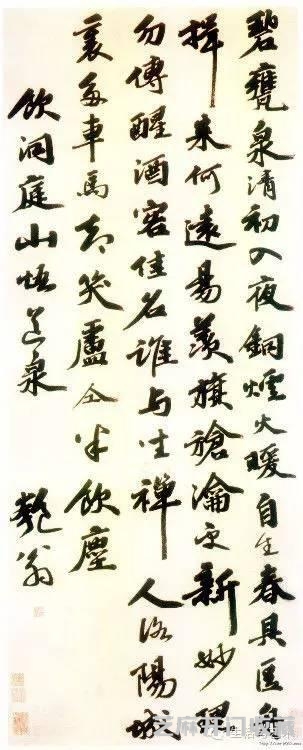 碧甕泉清初入夜銅爐火暖自生春具區舟
楫來何遠昜羨旗槍瀹更新妙理
勿傳醒酒客佳名誰与坐禪人洛陽城
裏多車馬却笑盧仝半飲塵
飲洞庭山悟道泉
匏翁